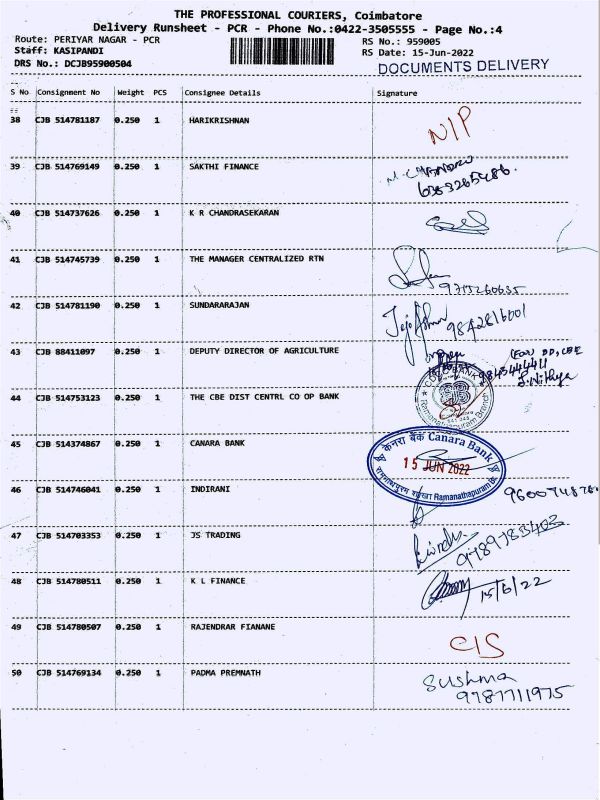 THE PROFESSIONAL COURIERS, Coimbatore
Delivery Runsheet - PCR - Phone No.:0422-3505555 - Page No.:4
Route: PERIYAR NAGAR - PCR
RS No.: 959005
Staff: KASIPANDI
RS Date: 15-Jun-2022
DRS No.: DCJB95900504
DOCUMENTS DELIVERY
S No Consignment No Weight PCS Consignee Details Signature
38 CJB 514781187 0.250 1 HARIKRISHNAN
N/P
39 CJB 514769149 0.250 1 SAKTHI FINANCE
6383265486.
40 CJB 514737626 0.250 1 K R CHANDRASEKARAN
41 CJB 514745739 0.250 1 THE MANAGER CENTRALIZED RTN
9715260635
42 CJB 514781190 0.250 1 SUNDARARAJAN
9842816001
43 CJB 88411097 0.250 1 DEPUTY DIRECTOR OF AGRICULTURE
(For) DD, CBE
9843444411
S. Nithya
44 CJB 514753123 0.250 1 THE CBE DIST CENTRL CO OP BANK
Ramanathapuram Branch
45 CJB 514374867 0.250 1 CANARA BANK
केनरा बैंक Canara Bank
15 JUN 2022
Ramanathapuram
46 CJB 514746041 0.250 1 INDIRANI
47 CJB 514703353 0.250 1 JS TRADING
9789783403
48 CJB 514780511 0.250 1 K L FINANCE
15/6/22
49 CJB 514780507 0.250 1 RAJENDRAR FIANANE
C/S
50 CJB 514769134 0.250 1 PADMA PREMNATH
Sushma
9787711975